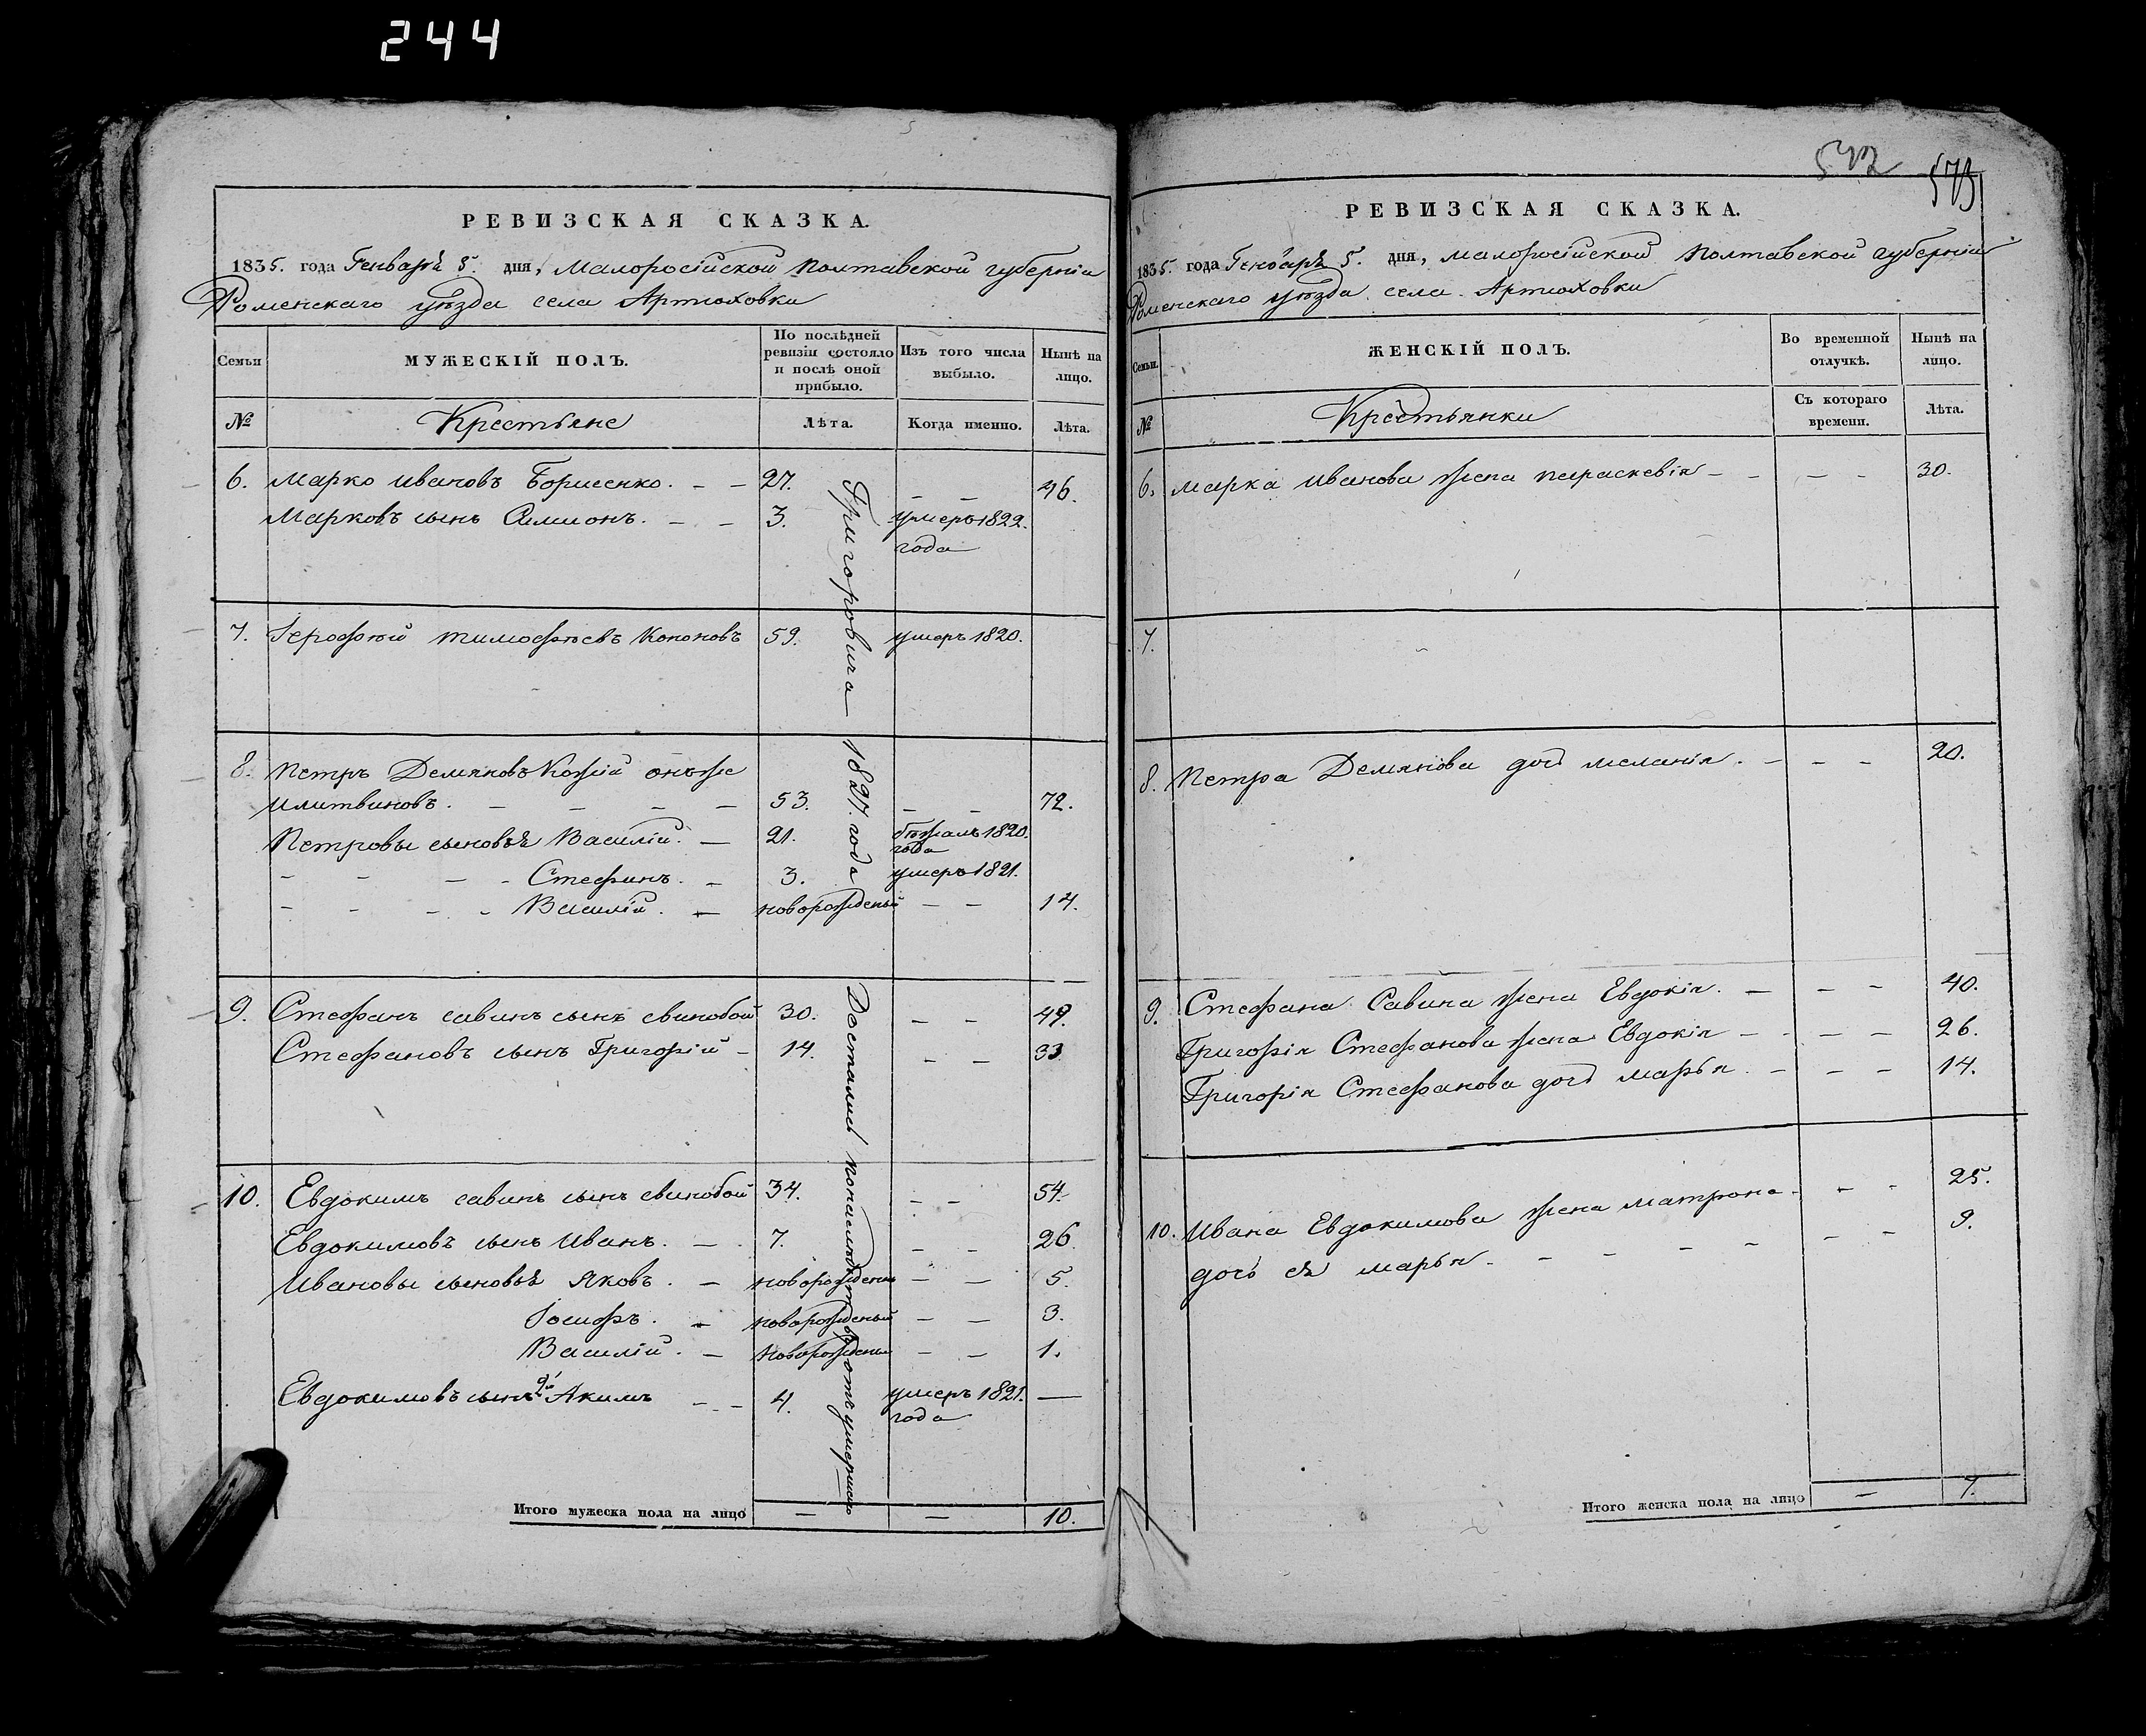 244
РЕВИЗСКАЯ СКАЗКА.
1835. года Генваря 5. дня, Малоросійской Полтавской губерніи
Роменскаго уѣзда села Артюховки
Семьи
МУЖЕСКІЙ ПОЛЪ.
По послѣдней ревизіи состояло и послѣ оной прибыло.
Изъ того числа выбыло.
Нынѣ на лицо.
№
Крестьяне
Лѣта.
Когда именно.
Лѣта.
6. Марко Ивановъ Борисенко. – – 27. – – 46.
Марковъ сынъ Симионъ. – – 3. умеръ 1822. года
7. Іерофѣй Тимофѣевъ Кононовъ 59. умеръ 1820.
8. Петръ Демяновъ Кожій онъже
Илитвиновъ. – – – – 53. – – 72.
Петровы сыновья Василій. – 21. бѣжалъ 1820. года
– – – – Стефанъ. – 3. умеръ 1821.
– – – – Василій. – новорожденый – – 14.
9. Стефанъ Савинъ сынъ Свинобой 30. – – 49.
Стефановъ сынъ Григорій – 14. – – 33.
10. Евдокимъ Савинъ сынъ Свинобой 34. – – 54.
Евдокимовъ сынъ Иванъ. – 7. – – 26.
Ивановы сыновья Яковъ. – новорожденый – – 5.
Іосифъ. – новорожденый – – 3.
Василій. – новорожденый – – 1.
Евдокимовъ сынъ 2й Акимъ – – 4. умеръ 1821. года –
Итого мужеска пола на лицо – – 10.
Достались по наслѣдству отъ умершаго
Григоровича 1827. года
572
573
РЕВИЗСКАЯ СКАЗКА.
1835. года Генваря 5. дня, Малоросійской Полтавской губерніи
Роменскаго уѣзда села Артюховки
Семьи.
ЖЕНСКІЙ ПОЛЪ.
Во временной отлучкѣ.
Нынѣ на лицо.
№
Крестьянки
Съ котораго времени.
Лѣта.
6. Марка Иванова жена Параскевія – – – – 30.
7.
8. Петра Демянова дочь Меланія. – – – 20.
9. Стефана Савина жена Евдокія. – – – 40.
Григорія Стефанова жена Евдокія – – – – 26.
Григорія Стефанова дочь Марья. – – – 14.
10. Ивана Евдокимова жена Матрона – – – 25.
дочь ея Марья. – – – – – – 9.
Итого женска пола на лицо – 7.